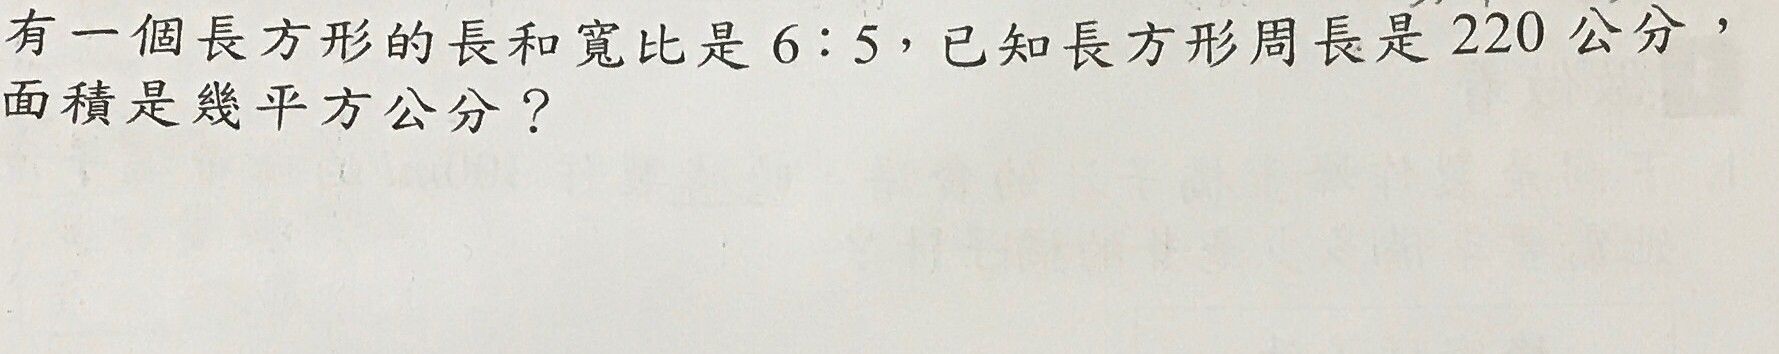 有一個長方形的長和寬比是 6：5，已知長方形周長是 220 公分，
面積是幾平方公分？